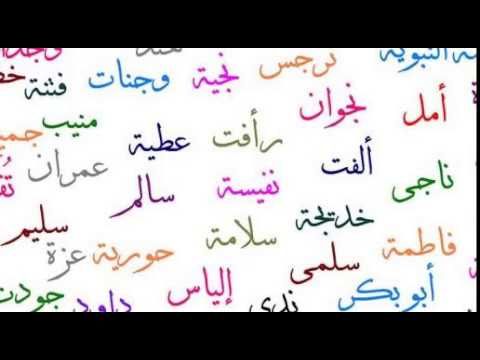 النبوية نرجس نجية وجنات فتنة
أمل نجوان رأفت عطية منيب
ناجى ألفت نفيسة سالم عمران
فاطمة خديجة سلامة حورية عزة سليم
أبو بكر سلمى ندى إلياس داود جودت